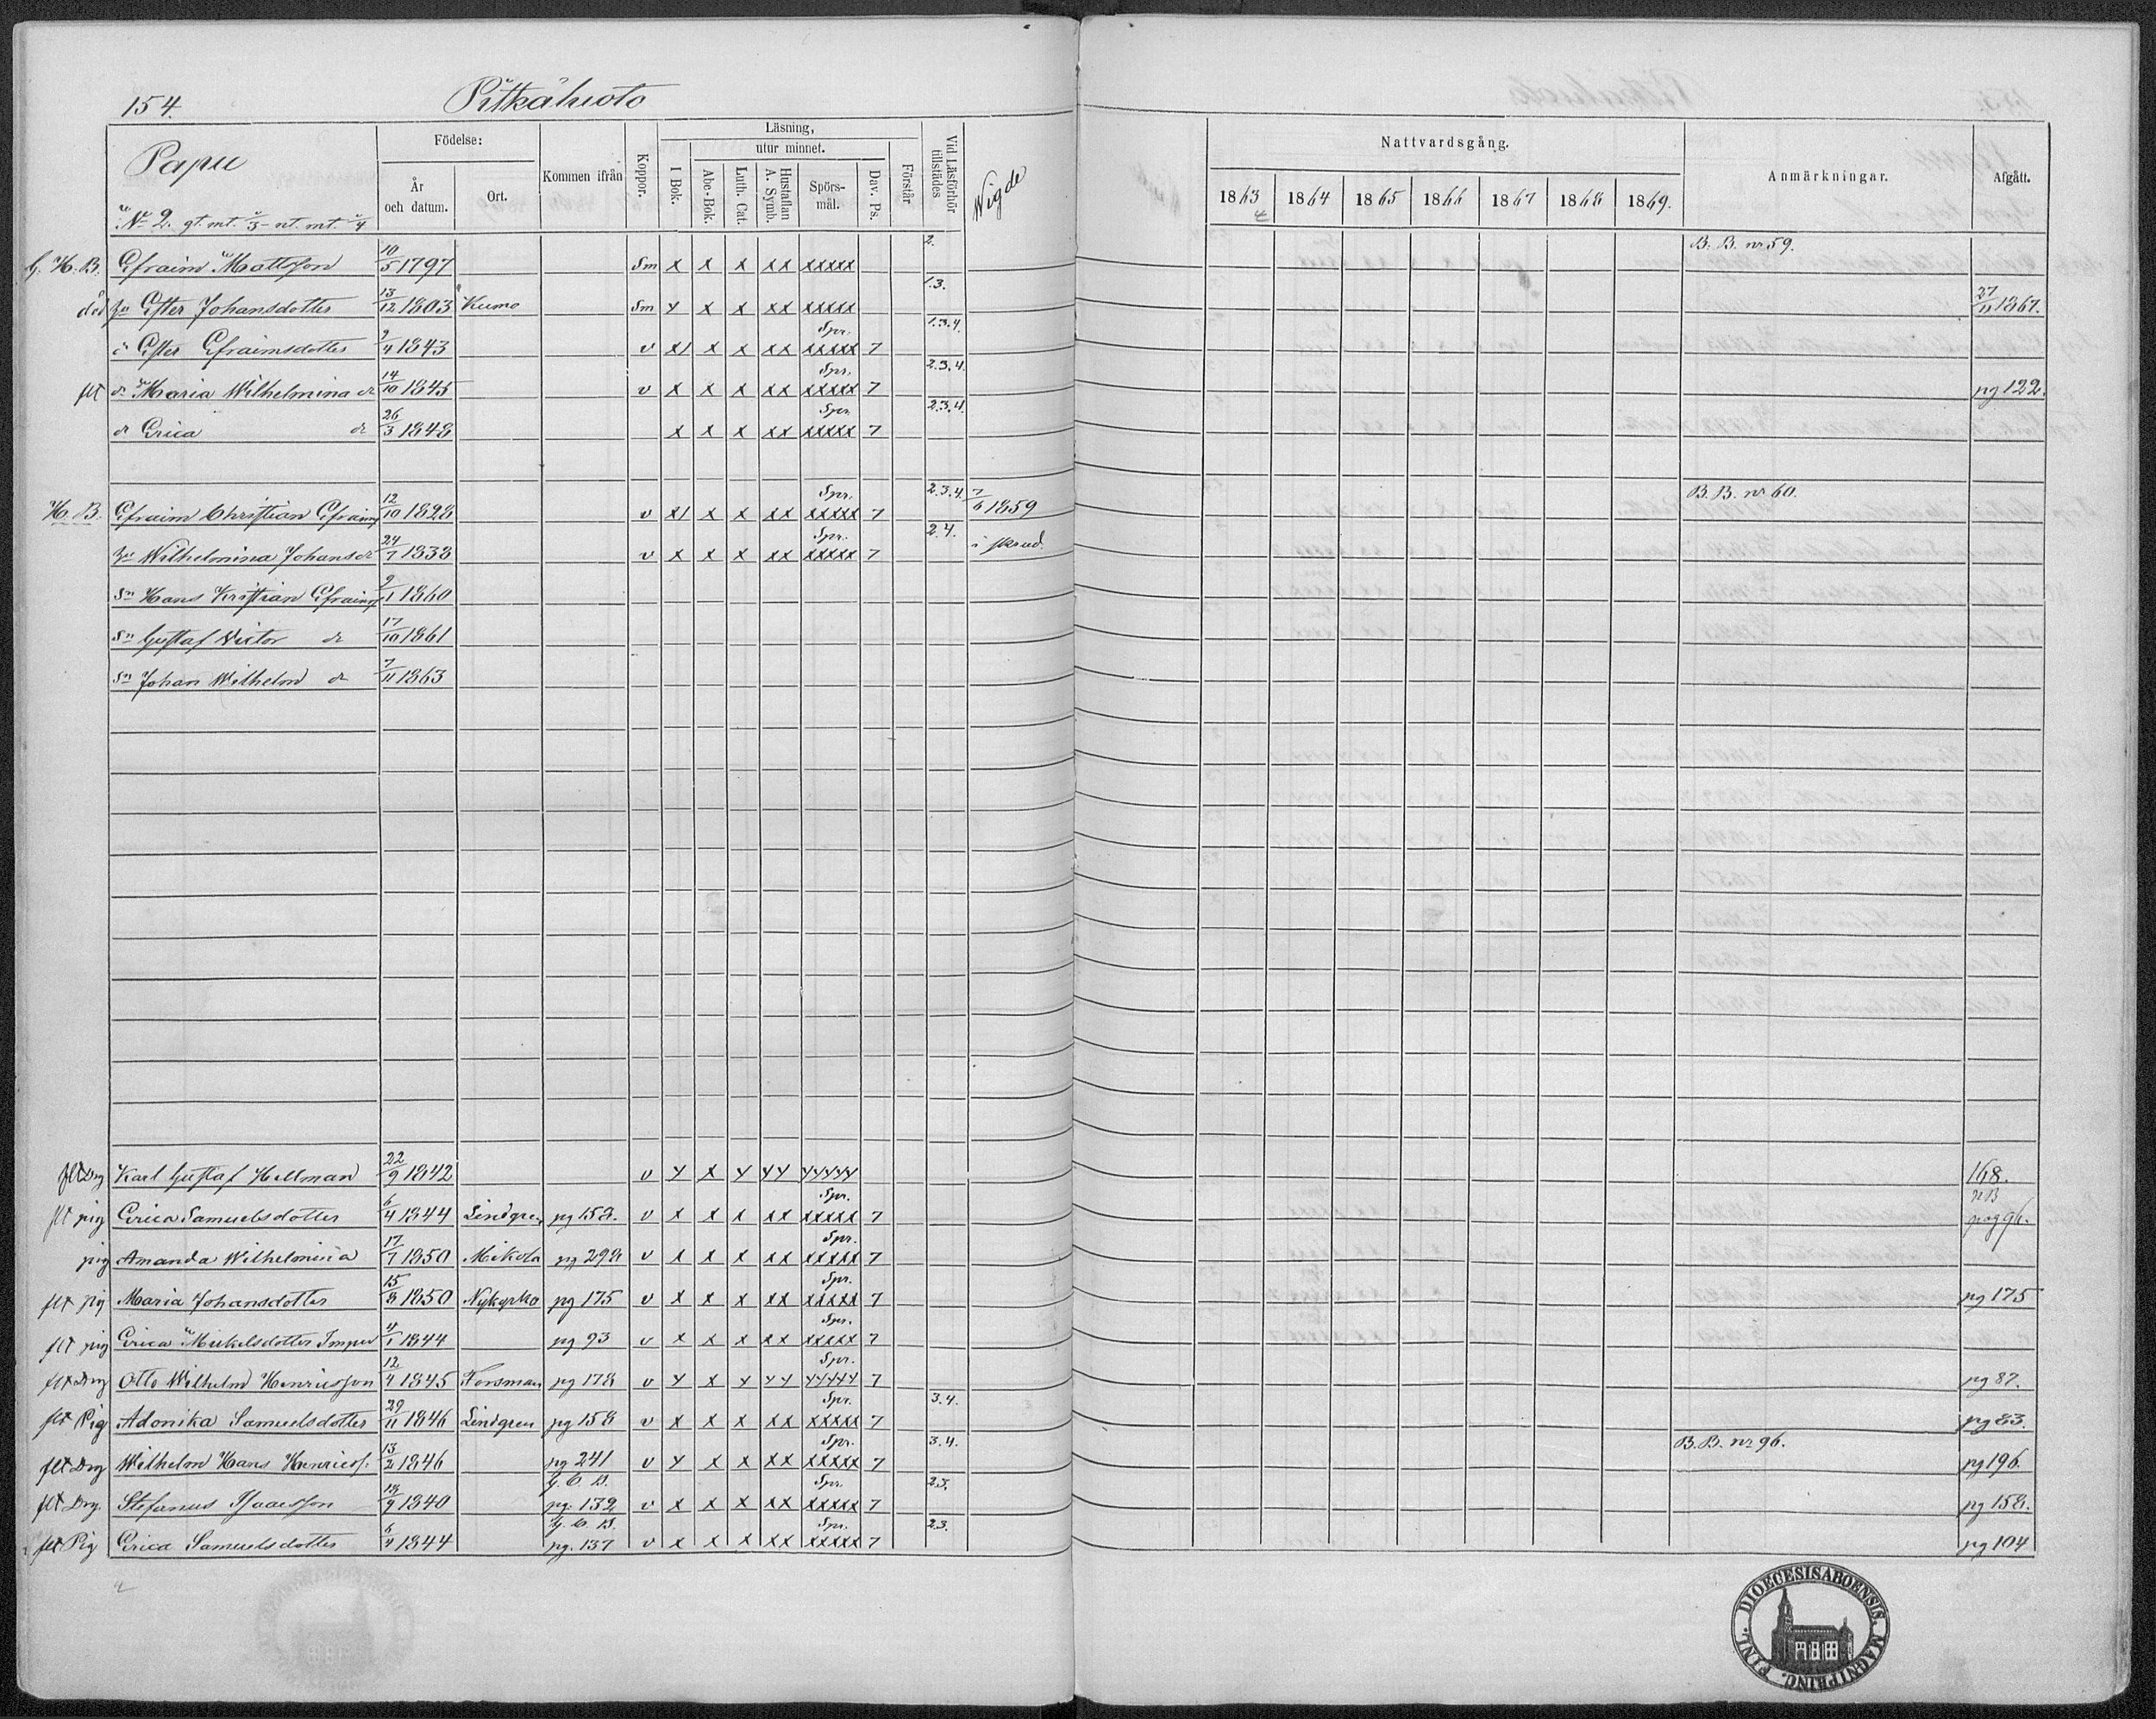 154.
Pitkäluoto
Papu
No 2. gt. mt. 3 - nt. mt. 4
Födelse:
År och datum.
Ort.
Kommen ifrån
Koppor.
Läsning,
I Bok.
utur minnet.
Abc-Bok.
Luth. Cat.
Hustaflan A. Symb.
Spörs-mål.
Dav. Ps.
Förstår
Vid Läsförhör tillstädes
Wigde
Nattvardsgång.
1863 1864 1865 1866 1867 1868 1869.
Anmärkningar.
Afgått.
G. H. B. Efraim Mattsson 10/5 1797 Sm x x x xx xxxxx 2. B. B. nr 59.
död hu Ester Johansdotter 13/12 1803 Kumo Sm y x x xx xxxxx 1.3. 27/11 1867.
d Ester Efraimsdotter 9/4 1843 v x1 x x xx Spr. xxxxx 7 1.3.4.
flt dr Maria Wilhelmina dr 14/10 1845 v x x x xx Spr. xxxxx 7 2.3.4. pg 122.
dr Erica dr 26/3 1848 x x x xx Spr. xxxxx 7 2.3.4.
H. B. Efraim Christian Efraimss 12/10 1828 v x1 x x xx Spr. xxxxx 7 2.3.4. 7/6 1859 B. B. nr 60.
hu Wilhelmina Johansdr 24/7 1838 v x x x xx Spr. xxxxx 7 2.4. i skrud.
Sn Hans Kristian Efraimss 9/1 1860
Sn Gustaf Victor dr 17/10 1861
Sn Johan Wilhelm dr 7/11 1863
flt Drg Karl Gustaf Hellman 22/9 1842 v y x y yy yyyyy 168.
flt pig Erica Samuelsdotter 6/4 1844 Lindgren pg 152. v x x x xx Spr. xxxxx 7 NB pag 96.
pig Amanda Wilhelmina 17/7 1850 Mikola pg 298 v x x x xx Spr. xxxxx 7
flt pig Maria Johansdotter 15/8 1850 Nykyrko pg 175 v x x x xx Spr. xxxxx 7 pg 175
flt pig Erica Mickelsdotter 4/1 1844 pg 93 v x x x xx Spr. xxxxx 7
flt Drg Otto Wilhelm Henricsson 12/4 1845 Forsman pg 178 v y x y yy Spr. yyyyy 7 pg 87.
flt Pig Adonika Samuelsdotter 29/11 1846 Lindgren pg 158 v x x x xx Spr. xxxxx 7 3.4. pg 83.
flt Drg Wilhelm Hans Henricss: 13/2 1846 pg 241 v y x x xx Spr. xxxxx 7 3.4. B. B. nr 96. pg 196
flt Drg. Stefanus Isaacsson 18/9 1840 G. C. B. pg. 132 v x x x xx Spr. xxxxx 7 2.3. pg 158.
flt Pig Erica Samuelsdotter 6/4 1844 G. C. B. pg. 137 v x x x xx Spr. xxxxx 7 2.3. pg 104
DIOECESIS ABOENSIS. MAGNI PRINC. FINL.